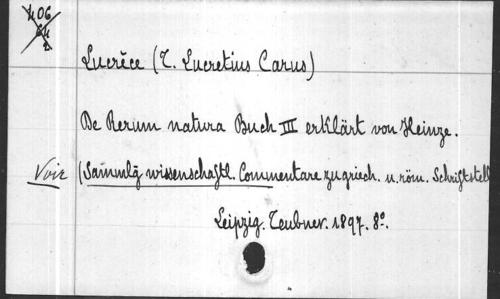 406
64
2
Lucrèce (T. Lucretius Carus)
De Rerum natura Buch III erklärt von Heinze.
Voir (Sammlg wissenschaftl. Commentare zu griech. u. röm. Schriftstell
Leipzig. Teubner. 1897. 8º.